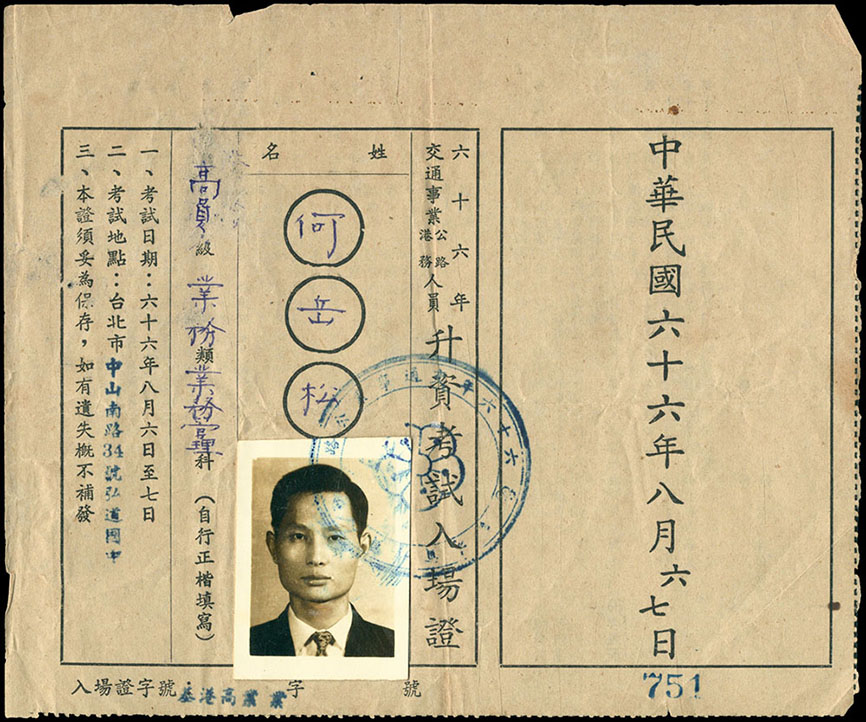 中華民國六十六年八月六七日
751
六十六年
交通事業公路港務人員升資考試入場證
姓名
何岳松
高員級業務類業務管理科（自行正楷填寫）
一、考試日期：六十六年八月六日至七日
二、考試地點：台北市中山南路34號弘道國中
三、本證須妥為保存，如有遺失概不補發
入場證字號：基港高業業字　號